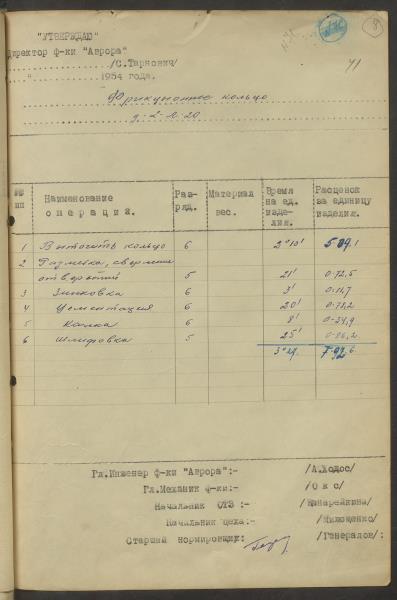 "УТВЕРЖДАЮ"
Директор ф-ки "Аврора"
/С.Тарнович/
" 1954 года.
8
71
Фрикционное кольцо
№№ пп
Наименование операций.
Раз-ряд.
Материал вес.
Время на ед. изде-лия.
Расценок за единицу изделия.
1 Выточить кольцо 6 2"10'
2 Разметка, сверление
отверстий 5 21' 0-72,5
3 Зинковка 6 3' 0-11,7
4 Цементация 6 20'
5 Калка 6 8'
6 Шлифовка 5 25'
3"27.
Гл.Инженер ф-ки "Аврора":- /А.Ходос/
Гл.Механик ф-ки:- /О к с/
Начальник ОТЗ :- /Канарейкина/
Начальник цеха:- /Милощенко/
Старший нормировщик: /Генералов/: